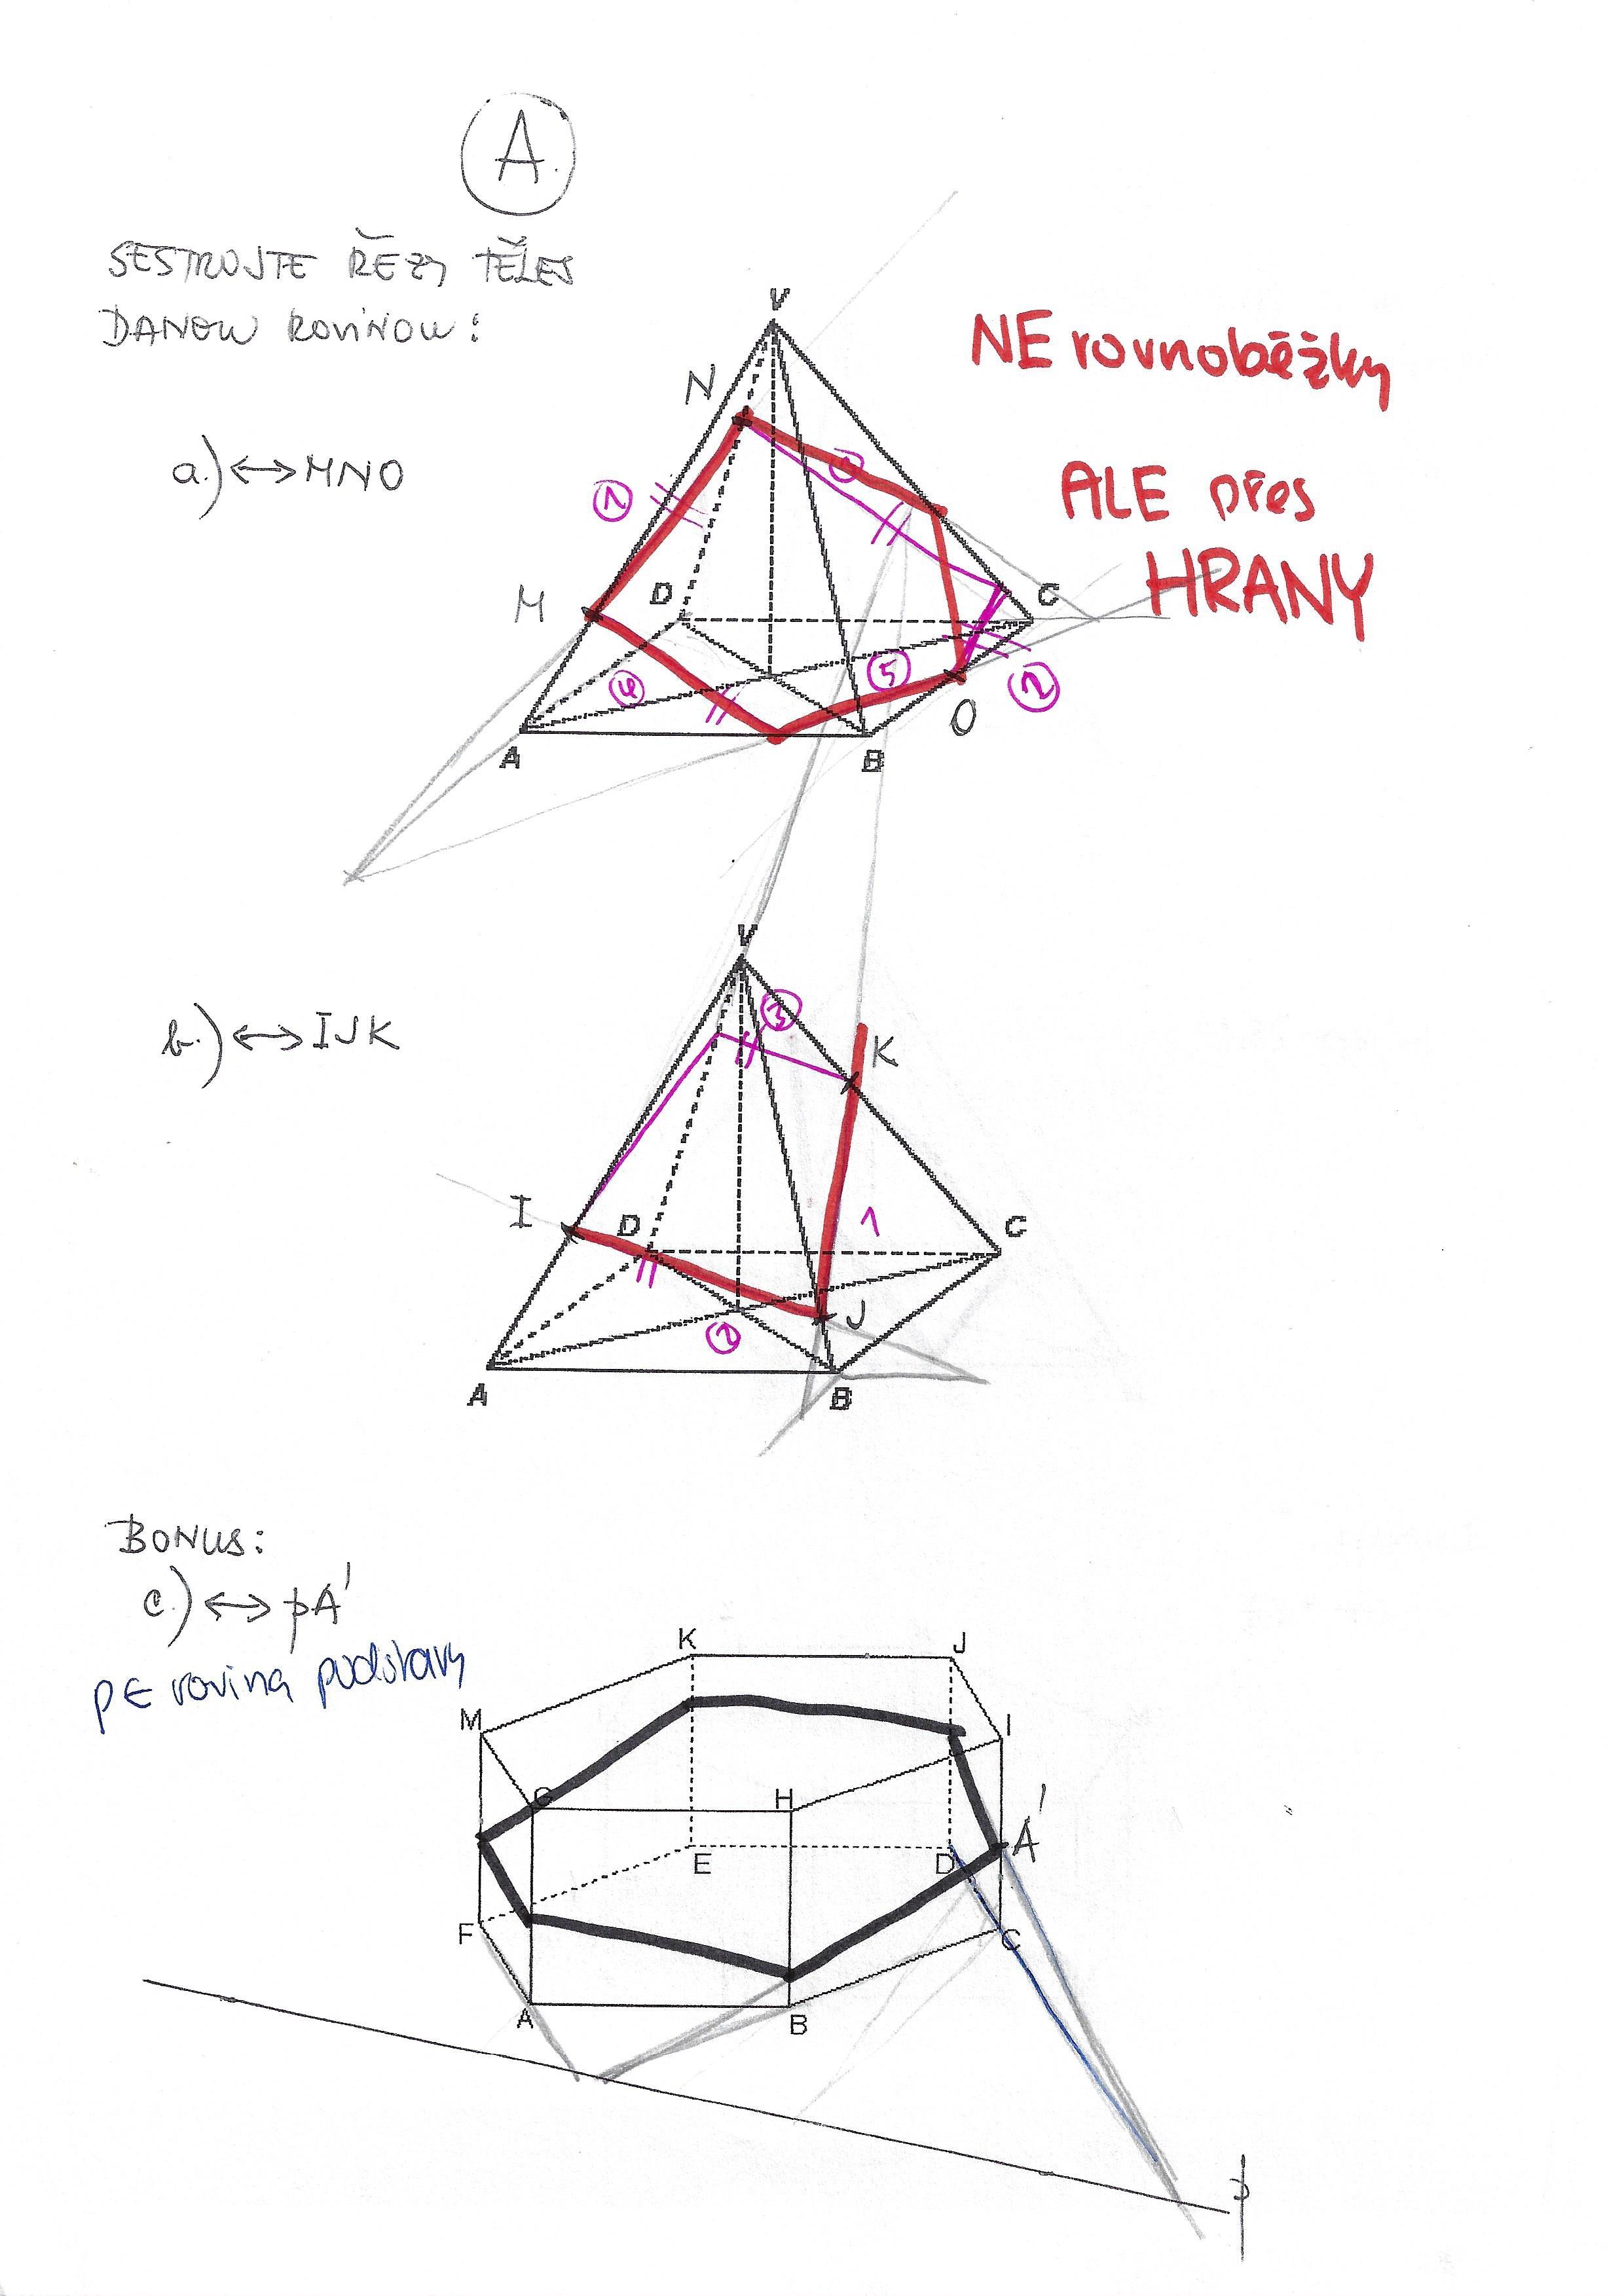 A
SESTROJTE ŘEZY TĚLES
DANOU ROVINOU:
V
NE rovnoběžky
N
a.) ↔ MNO
ALE přes
HRANY
1
M
D
C
4
5
2
O
A
B
V
3
b.) ↔ IJK
K
I
D
1
C
J
2
A
B
BONUS:
c.) ↔ pA'
p∈ rovina podstavy
K
J
M
I
G
H
A'
E
D
F
C
A
B
p